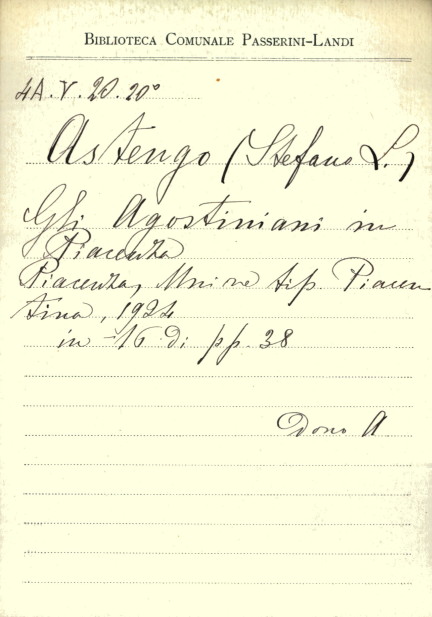 BIBLIOTECA COMUNALE PASSERINI-LANDI
4A.V.20.20°
Astengo (Stefano L.)
Gli Agostiniani in
Piacenza
Piacenza, Unione tip. Piacen
tina, 1924
in -16 di pp. 38
Dono A.